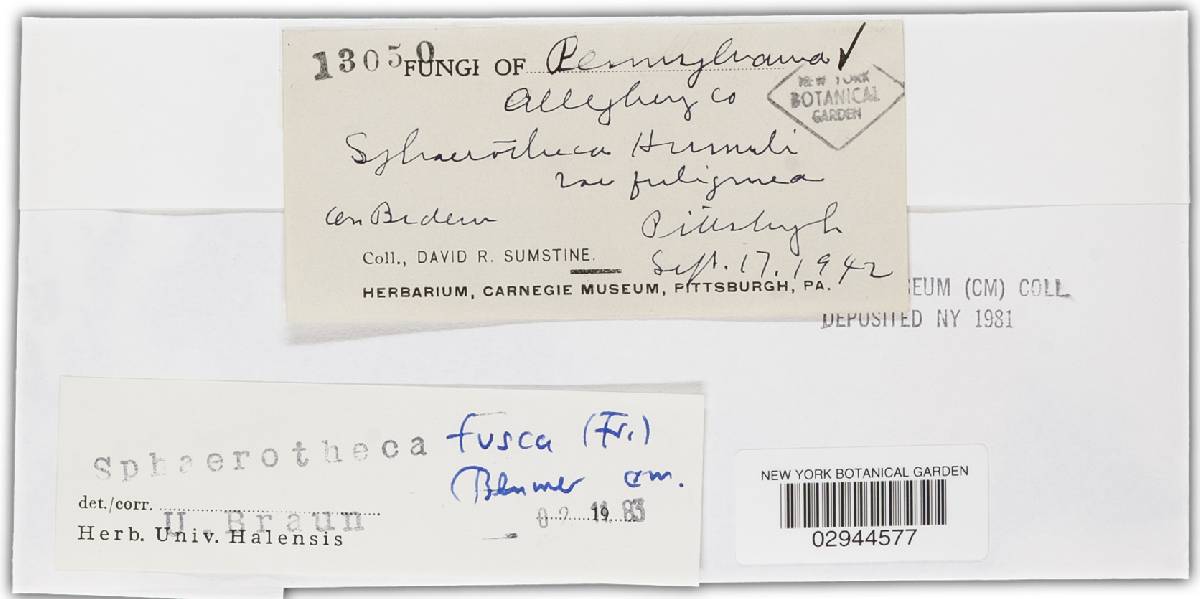 13050 FUNGI OF Pennsylvania ✓
Allegheny Co
NEW YORK
BOTANICAL
GARDEN
Sphaerotheca Humuli
var fuliginea
on Bidens
Pittsburgh
Coll., DAVID R. SUMSTINE.
Sept. 17, 1942
HERBARIUM, CARNEGIE MUSEUM, PITTSBURGH, PA.
EUM (CM) COLL.
DEPOSITED NY 1981
Sphaerotheca fusca (Fr.)
Blumer em.
det./corr.
U. Braun
19 83
Herb. Univ. Halensis
NEW YORK BOTANICAL GARDEN
02944577